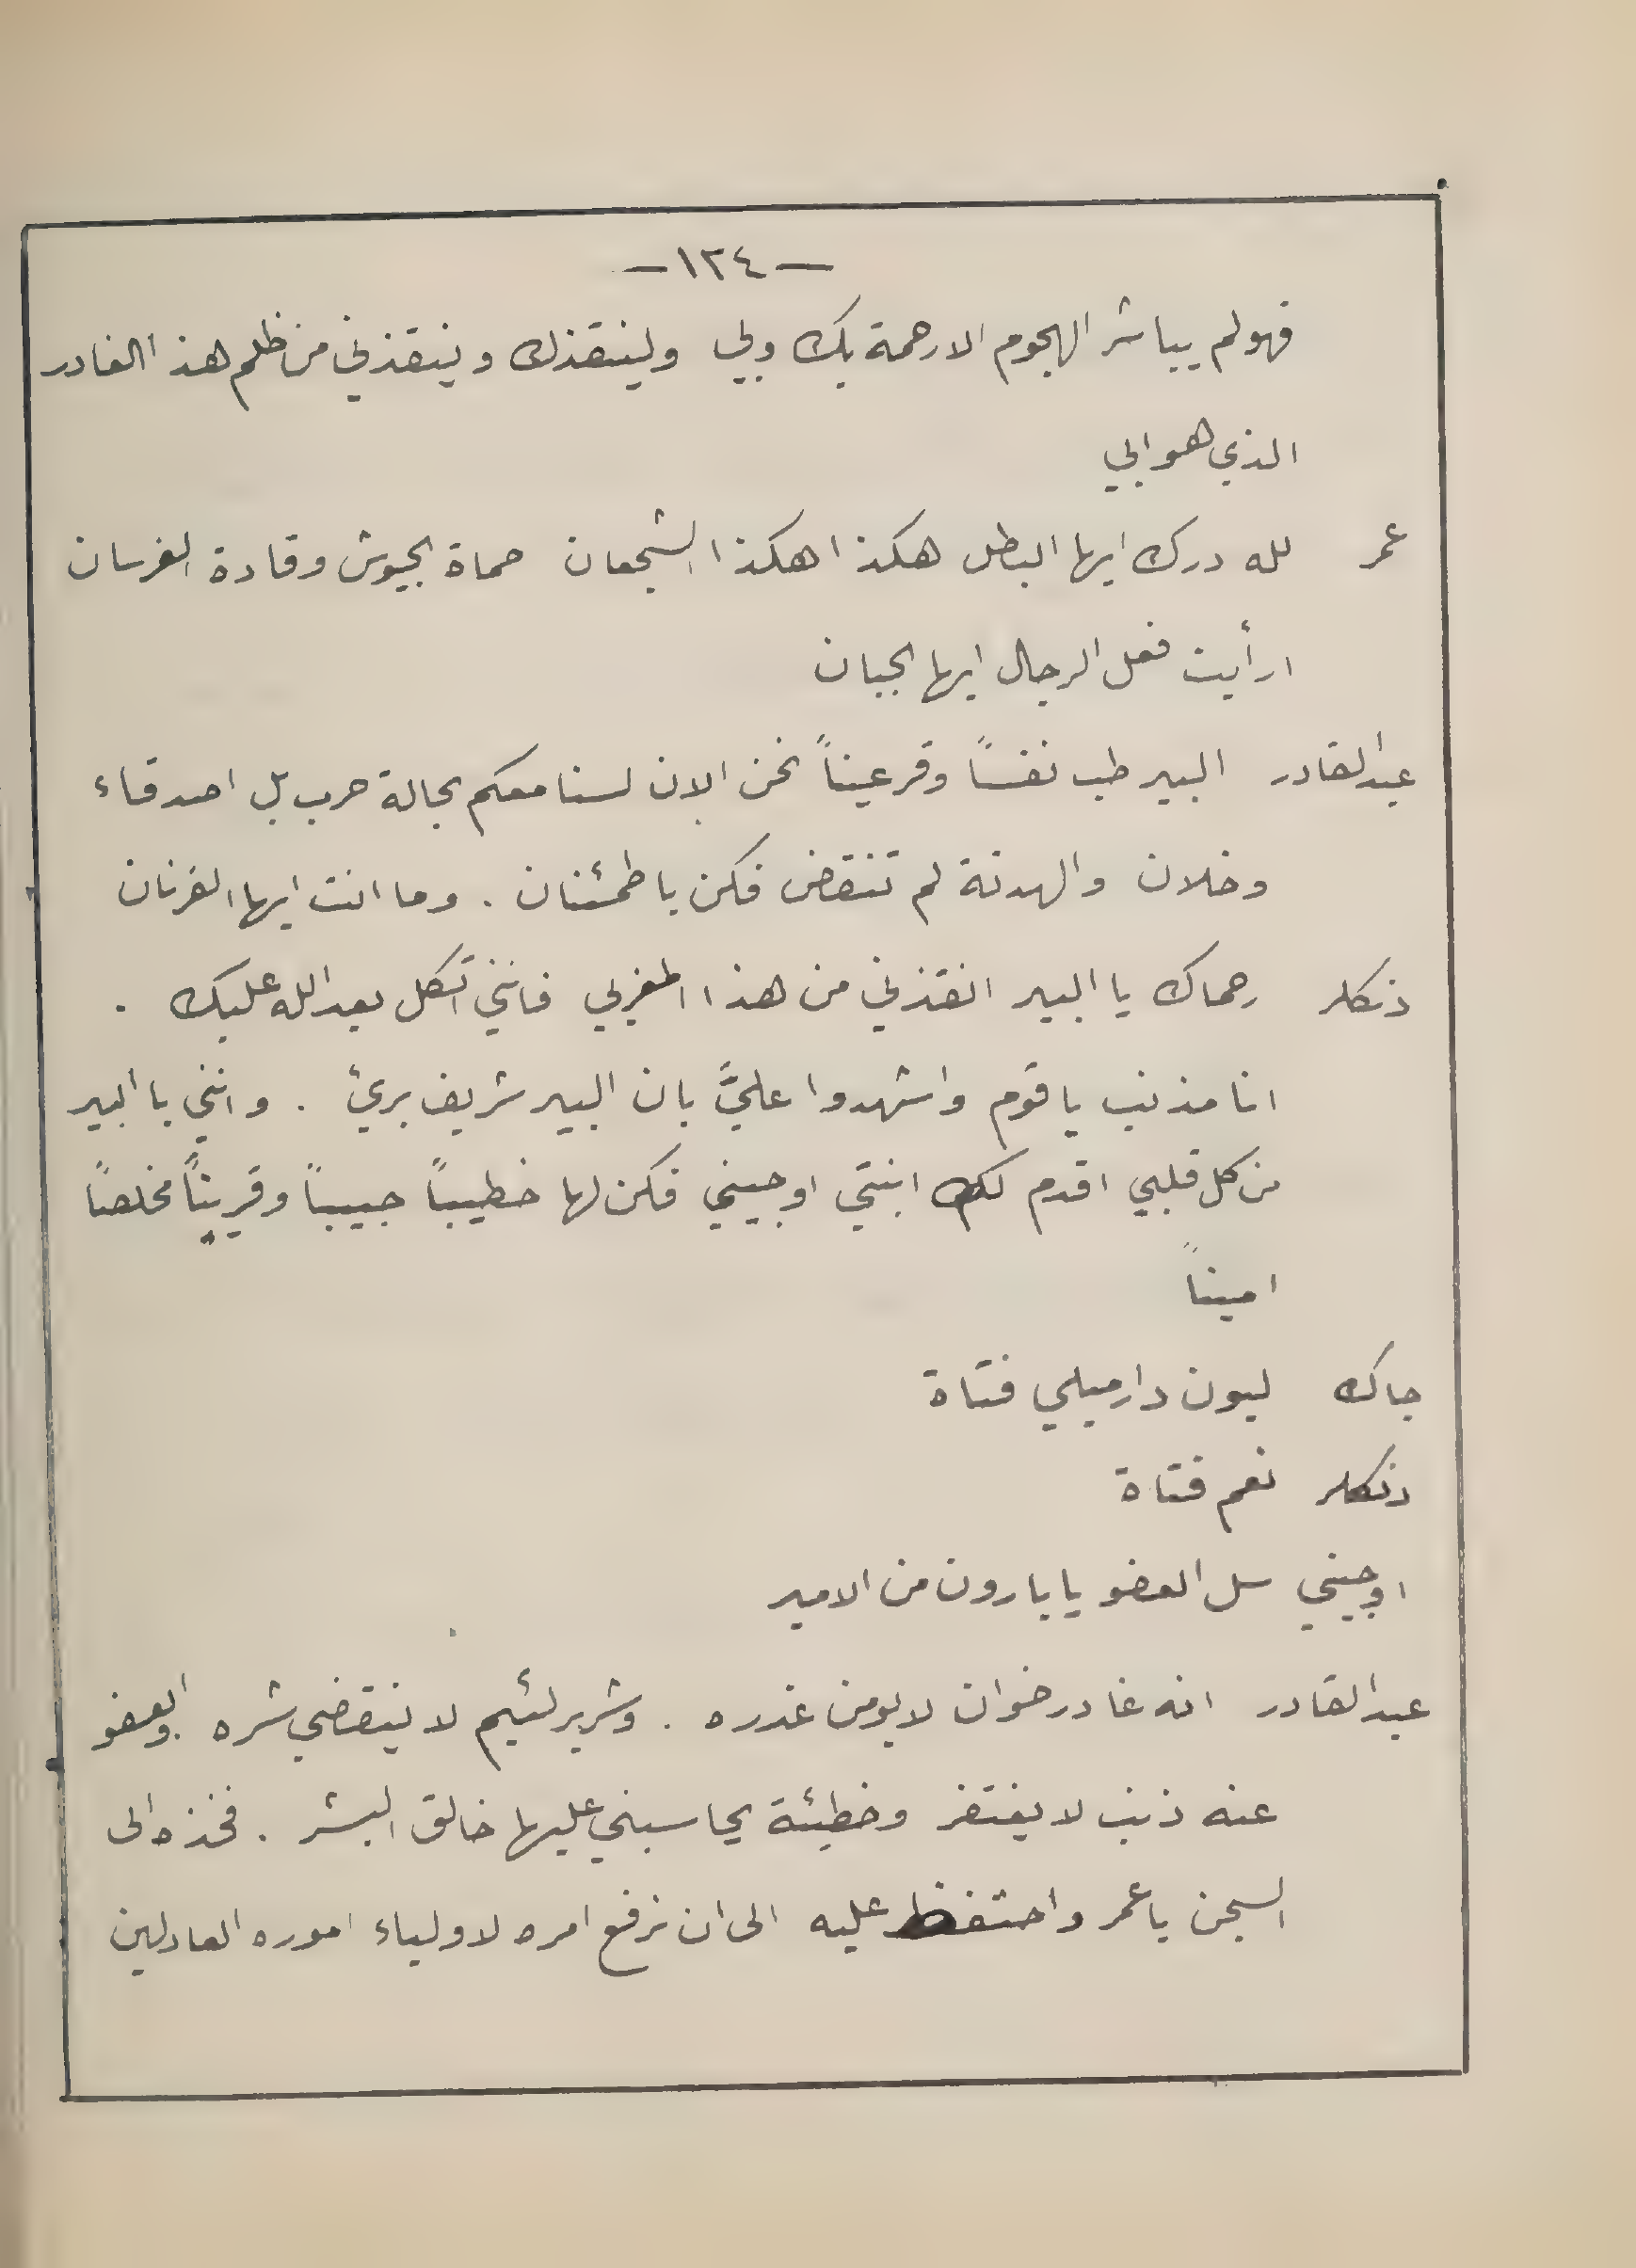 —١٣٤—
فهو لم يباشر الهجوم الا رحمة بك وبي ولينقذك وينقذني من ظلم هذا الغادر
الذي هو ابي
عمر لله درك ايها البطل هكذا هكذا الشجعان حماة الجيوش وقادة الفرسان
ارأيت فعل الرجال ايها الجبان
عبد القادر البير طب نفساً وقر عيناً نحن الان لسنا معكم بحالة حرب بل اصدقاء
وخلان والهدنة لم تنقض فكن باطمئنان . وما انت ايها القرنان
دنكلر رحماك يا البير انقذني من هذا المغربي فانني اتكل بعد الله عليك .
انا مذنب يا قوم واشهدوا عليَّ بان البير شريف بريئ . وانني يا البير
من كل قلبي اقدم لك ابنتي اوجيني فكن لها خطيباً حبيباً وقريناً مخلصاً
اميناً
جاك ليون دارميلي فتاة
دنكلر نعم فتاة
اوجيني سل العفو يا بارون من الامير
عبد القادر انه غادر خوان لا يومن غدره . وشرير لئيم لا ينقضي شره والعفو
عنه ذنب لا يغتفر وخطيئة يحاسبني عليها خالق البشر . فخذه الى
السجن يا عمر واحتفظ عليه الى ان نرفع امره لاولياء اموره العادلين